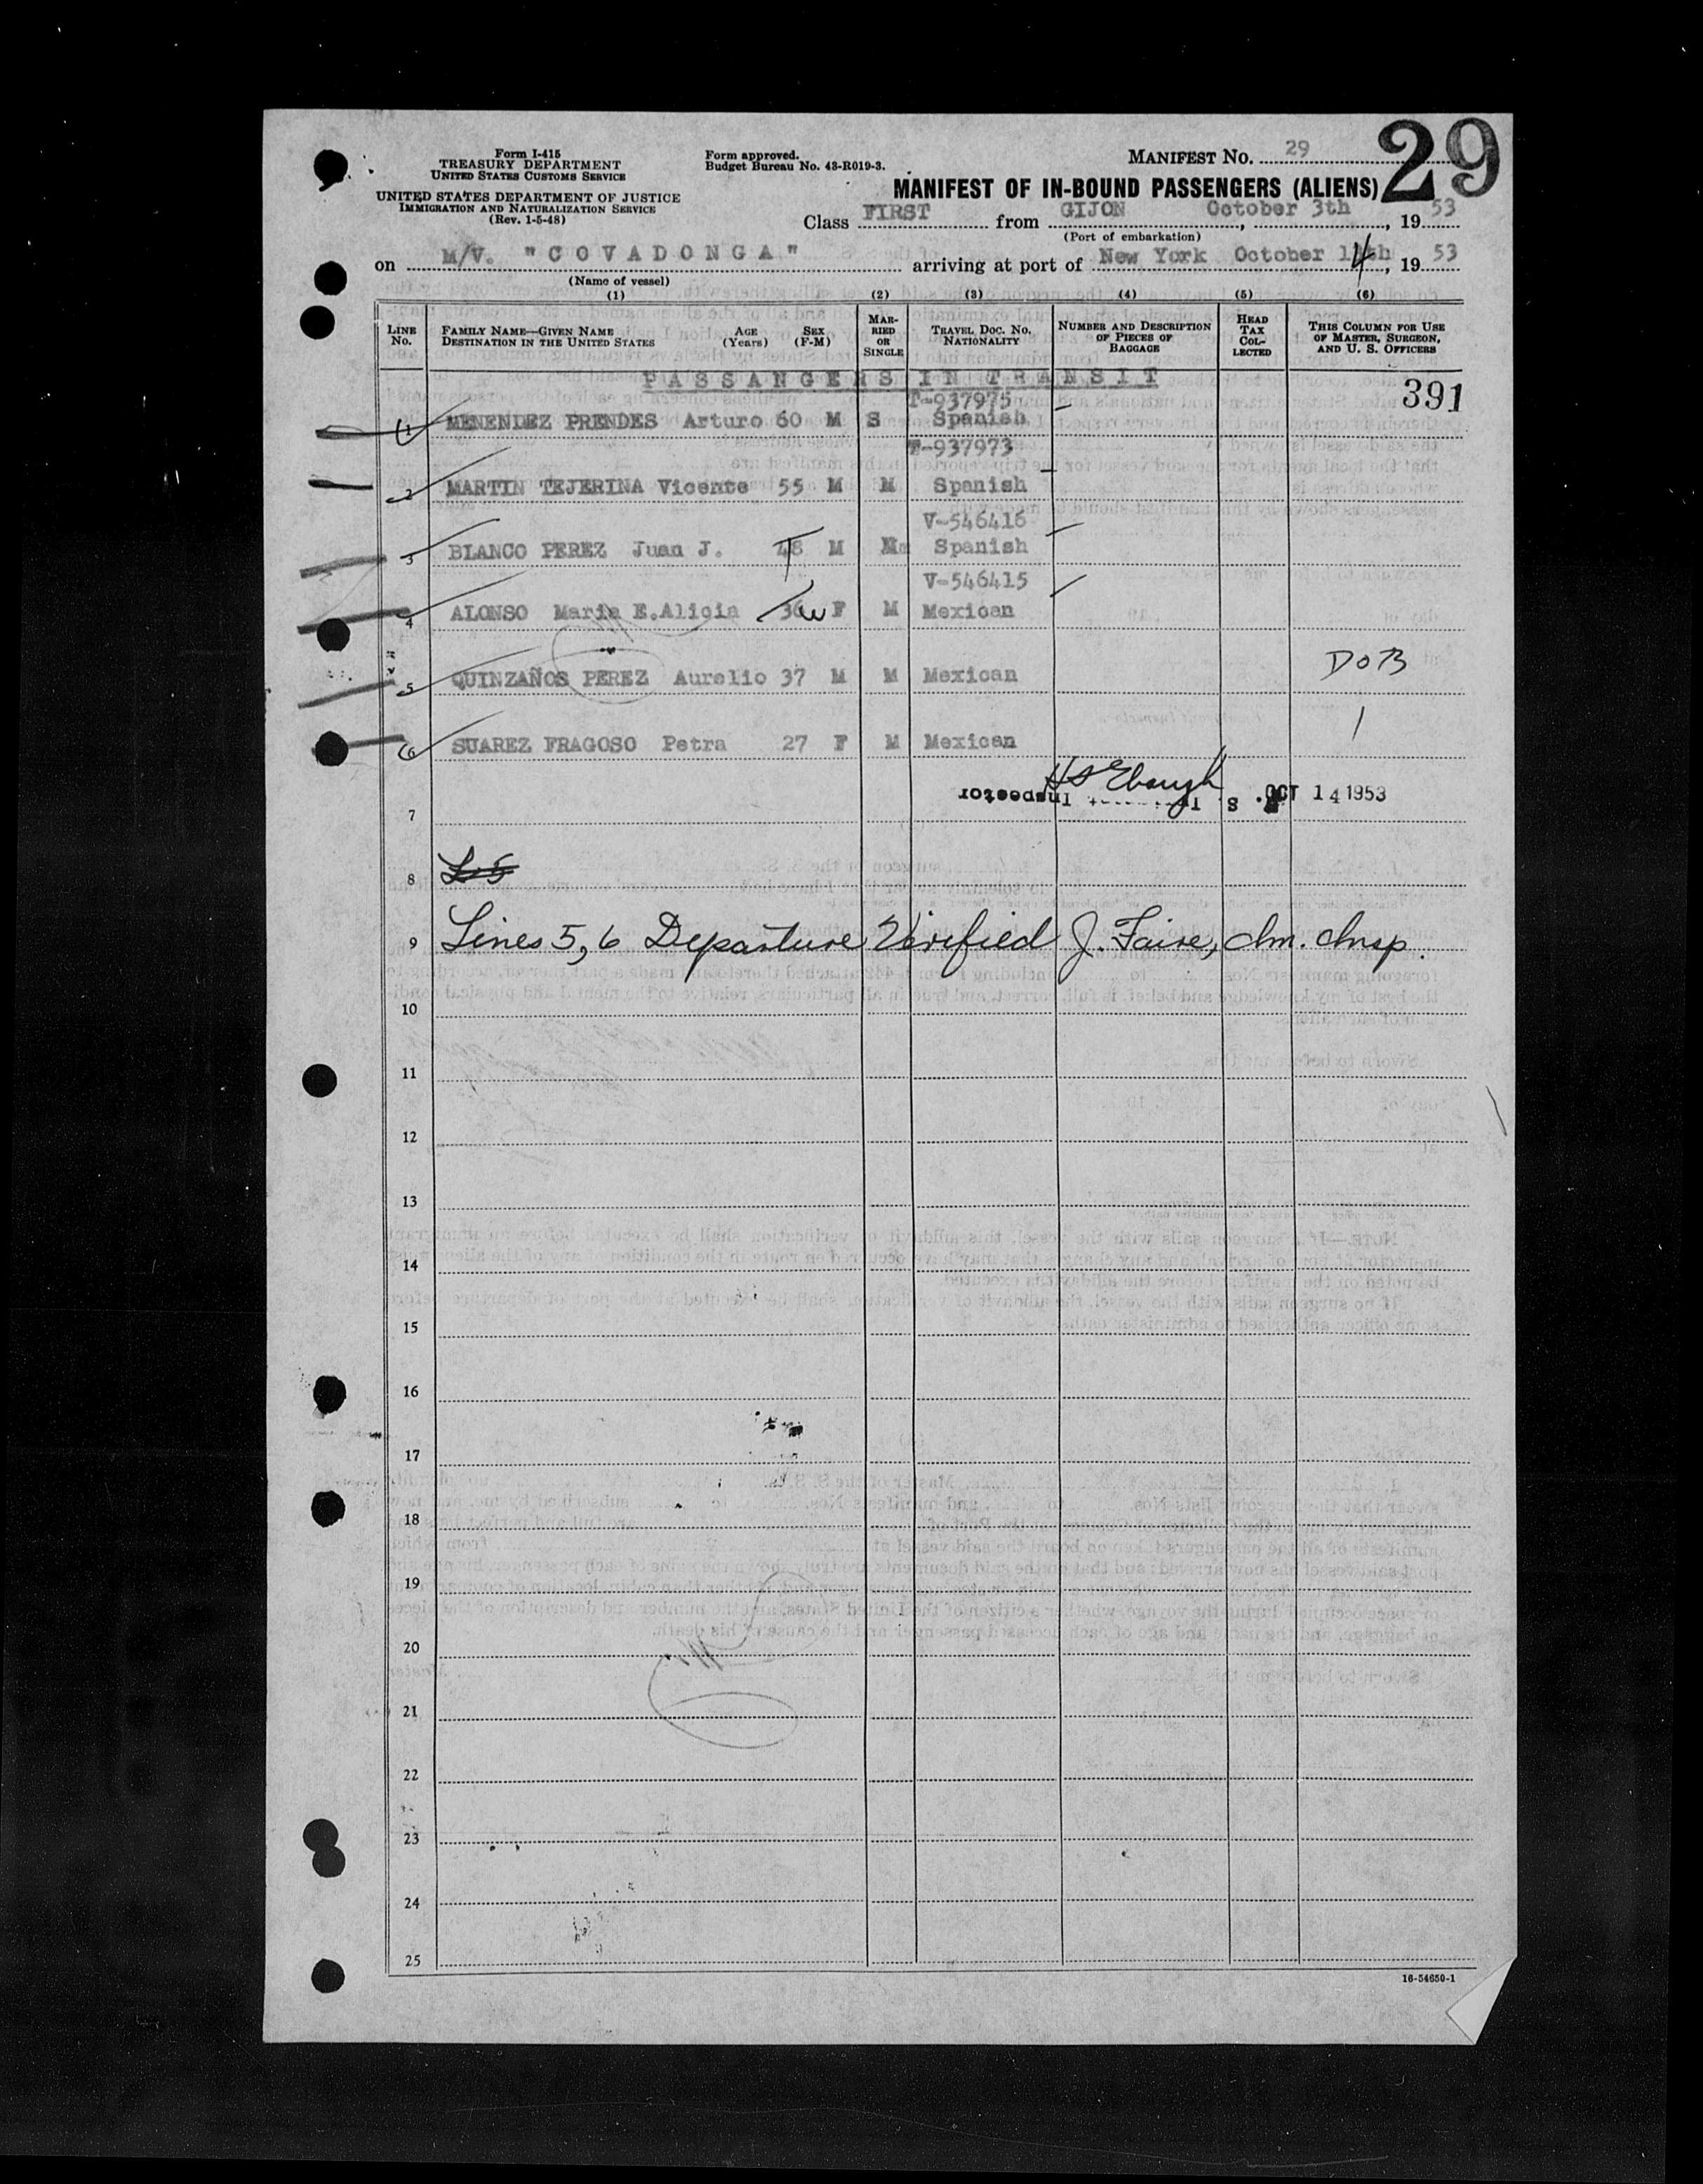 Form I-415
TREASURY DEPARTMENT
UNITED STATES CUSTOMS SERVICE
UNITED STATES DEPARTMENT OF JUSTICE
IMMIGRATION AND NATURALIZATION SERVICE
(Rev. 1-5-48)
Form approved.
Budget Bureau No. 43-R019-3.
MANIFEST NO. 29
29
MANIFEST OF IN-BOUND PASSENGERS (ALIENS)
Class FIRST from GIJON, October 3th, 1953
(Port of embarkation)
on M/V. "COVADONGA" arriving at port of New York October 14th, 1953
(Name of vessel)
(1) (2) (3) (4) (5) (6)
LINE NO.
FAMILY NAME—GIVEN NAME AGE (Years) SEX (F-M)
DESTINATION IN THE UNITED STATES
MARRIED OR SINGLE
TRAVEL DOC. NO. NATIONALITY
NUMBER AND DESCRIPTION OF PIECES OF BAGGAGE
HEAD TAX COLLECTED
THIS COLUMN FOR USE OF MASTER, SURGEON, AND U. S. OFFICERS
PASSANGERS IN TRANSIT
391
T-937975
1 MENENDEZ PRENDES Arturo 60 M S Spanish
T-937973
2 MARTIN TEJERINA Vicente 55 M M Spanish
V-546416
3 BLANCO PEREZ Juan J. 48 M M Spanish
V-546415
4 ALONSO Maria E.Alicia 36 F M Mexican
5 QUINZAÑOS PEREZ Aurelio 37 M M Mexican DOB
6 SUAREZ FRAGOSO Petra 27 F M Mexican
Inspector
OCT 14 1953
7
8 L-5
9 Lines 5, 6 Departure Verified J. Faire, Im. Insp.
10
11
12
13
14
15
16
17
18
19
20
21
22
23
24
25
16-54650-1